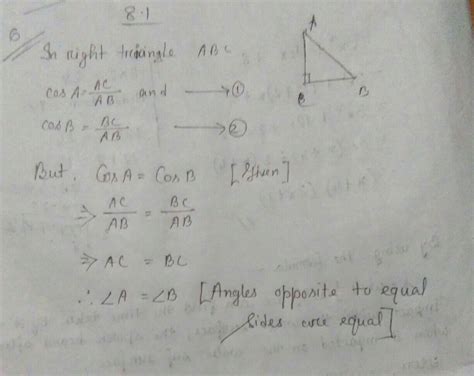 8.1
6
In right triangle ABC
cosA = AC/AB and → ①
cosB = BC/AB → ②
But, CosA = CosB [Given]
⇒ AC/AB = BC/AB
⇒ AC = BC
∴ ∠A = ∠B [Angles opposite to equal
sides are equal]
A
B
B